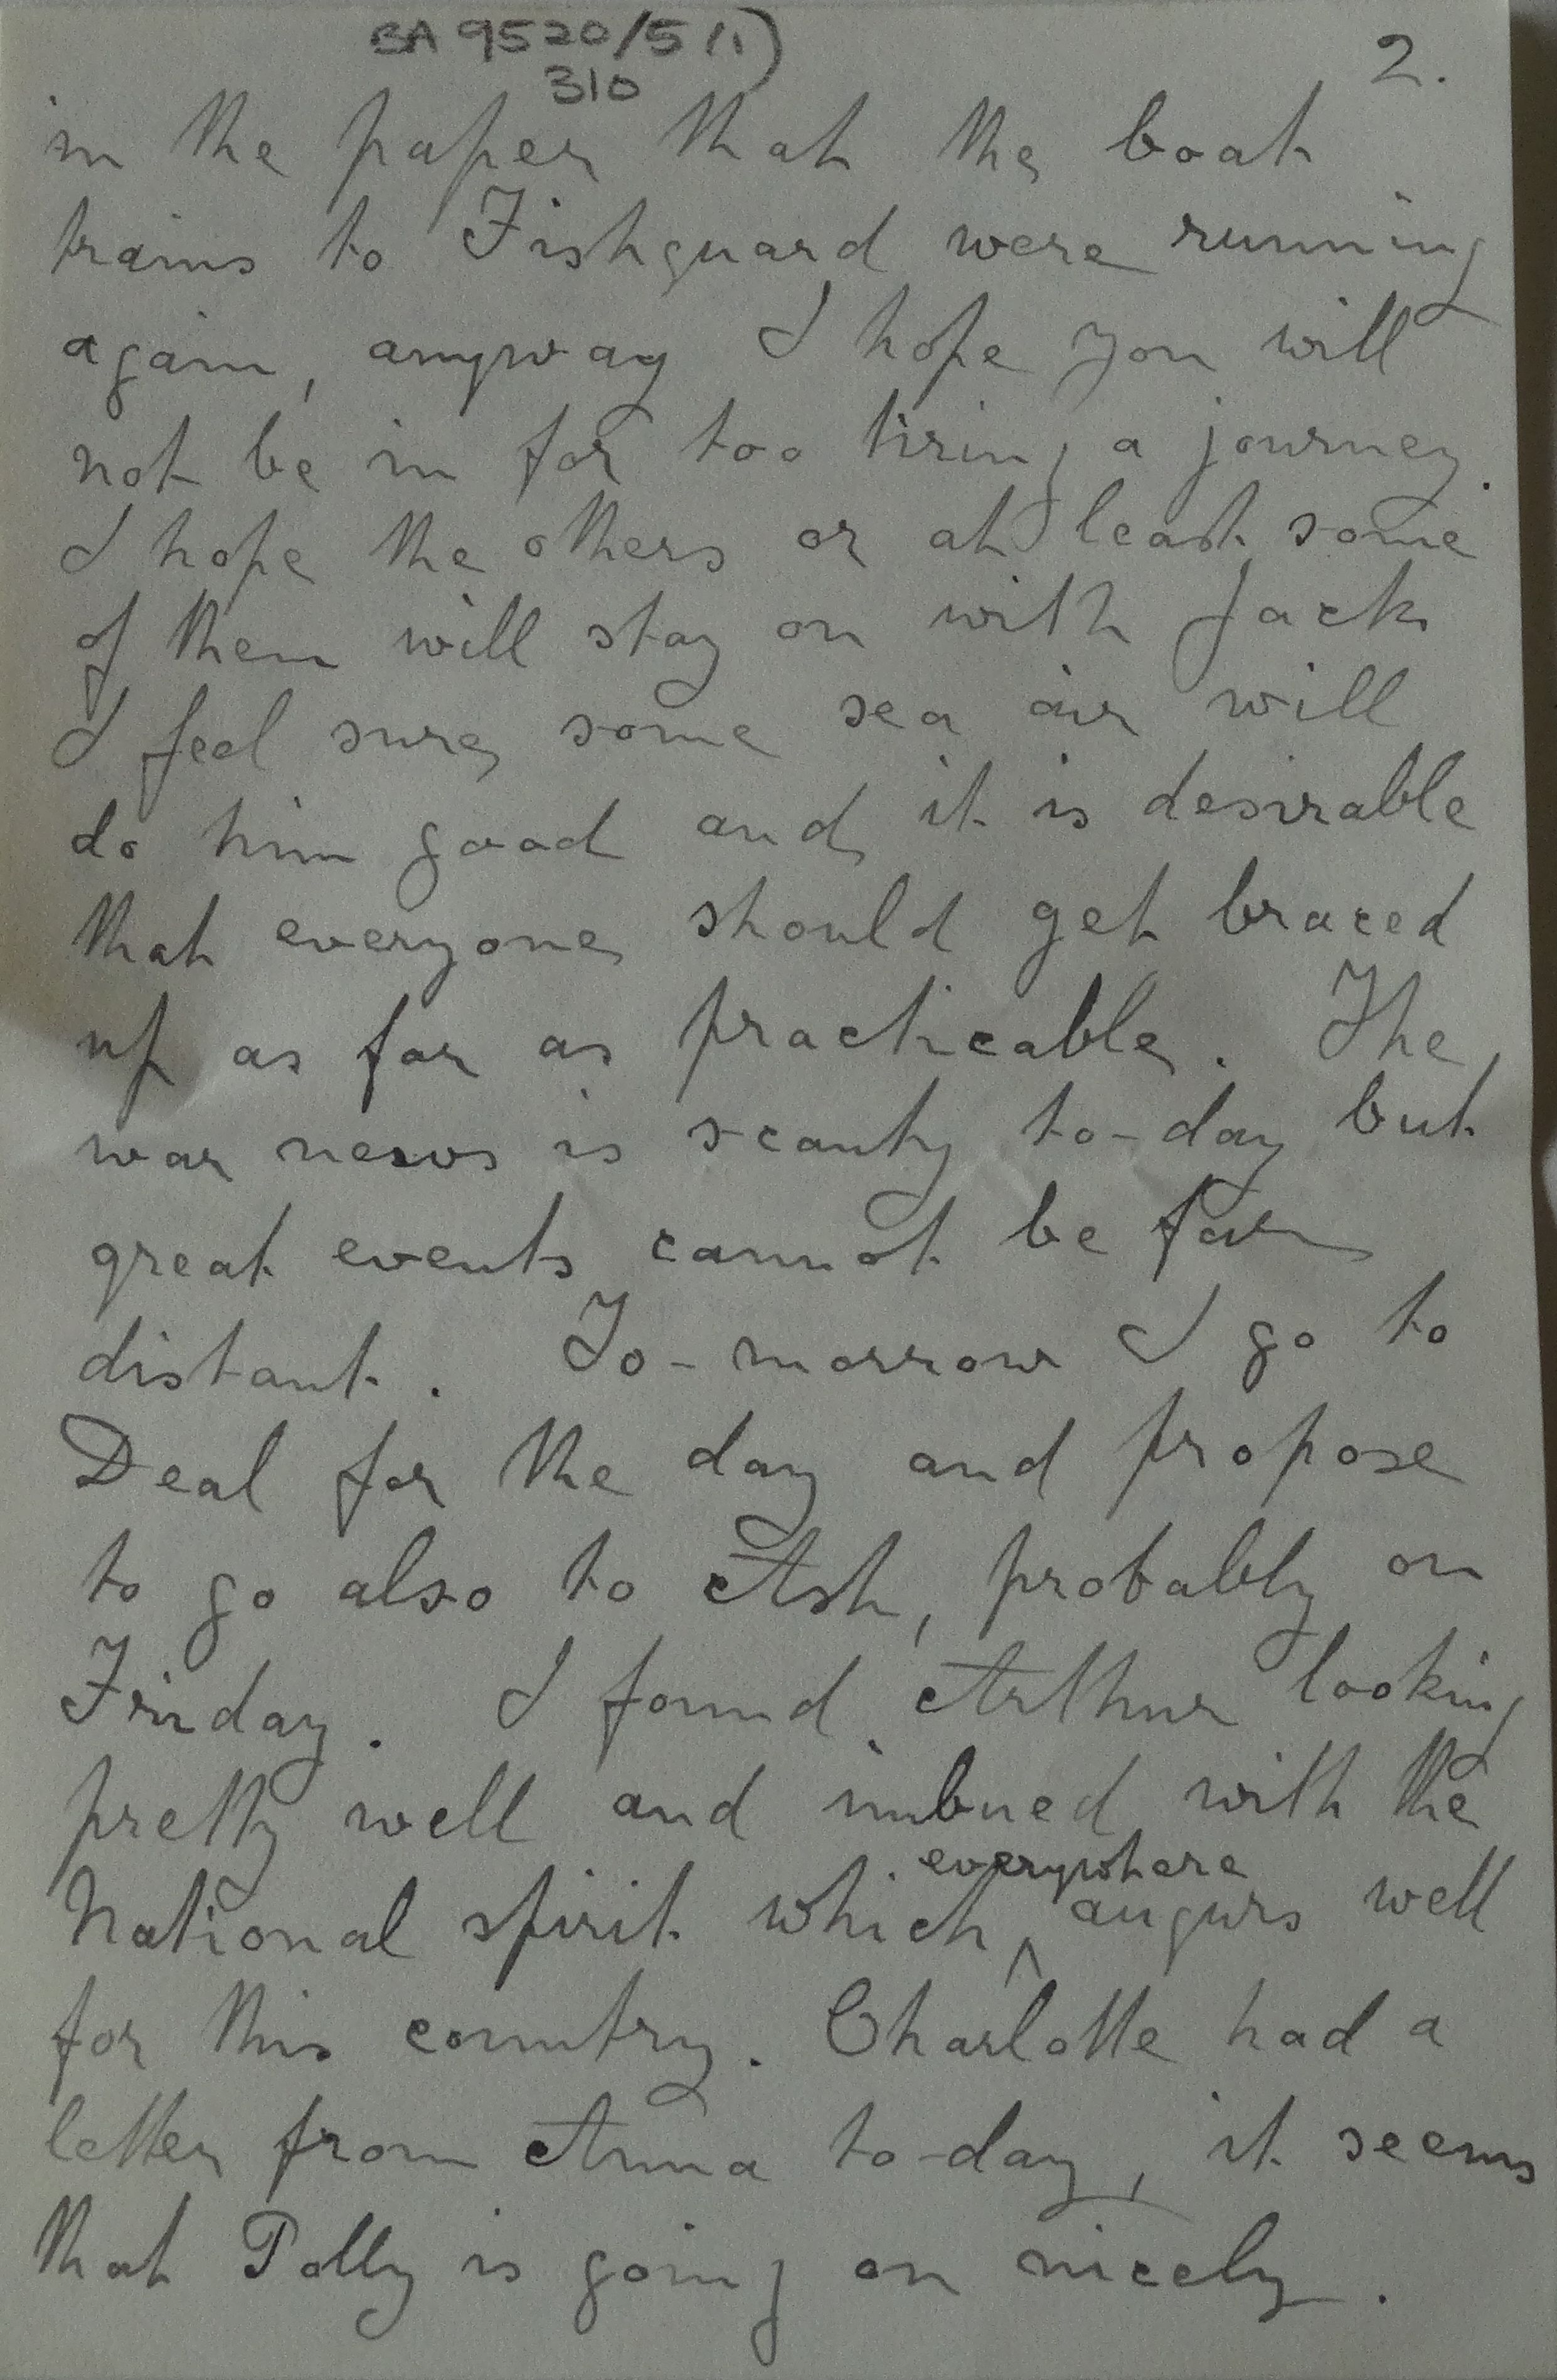 BA 9520/5 (1)
310
2.
in the paper that the boat
trains to Fishguard were running
again, anyway I hope you will
not be in for too tiring a journey.
I hope the others or at least some
of them will stay on with Jack
I feel sure some sea air will
do him good and it is desirable
that everyone should get braced
up as far as practicable. The
war news is scanty to-day but
great events cannot be far
distant. To-morrow I go to
Deal for the day and propose
to go also to Ash, probably on
Friday. I found Arthur looking
pretty well and imbued with the
everywhere
National spirit which ^ augurs well
for this country. Charlotte had a
letter from Anna to-day, it seems
that Polly is going on nicely.